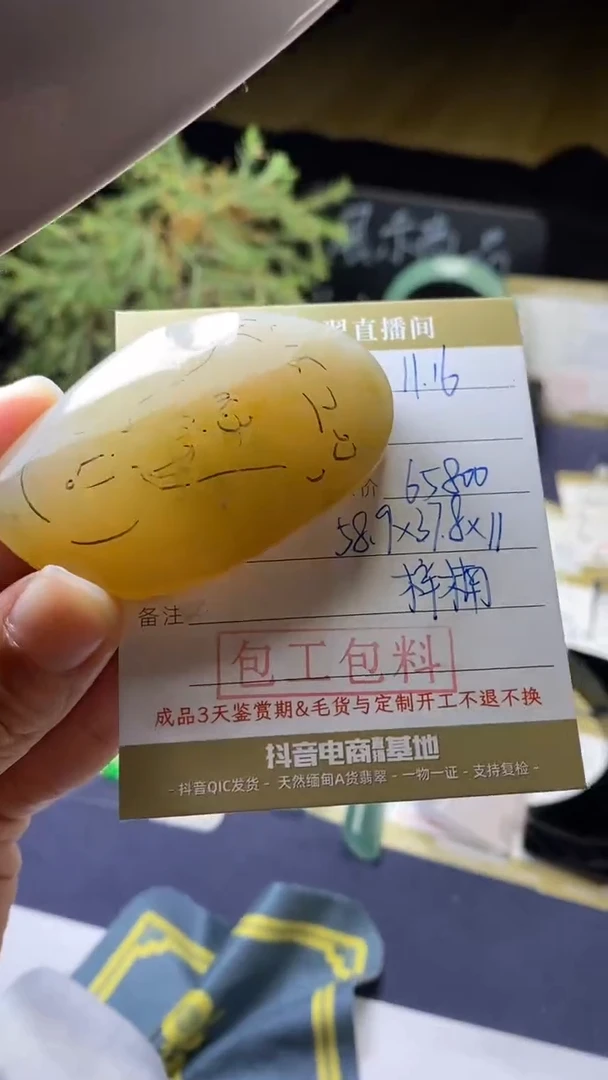 直播间
11.16
价 65800
58.9×37.8×11
梓楠
备注
包工包料
成品3天鉴赏期&毛货与定制开工不退不换
抖音电商基地
- 抖音QIC发货 - 天然缅甸A货翡翠 - 一物一证 - 支持复检 -